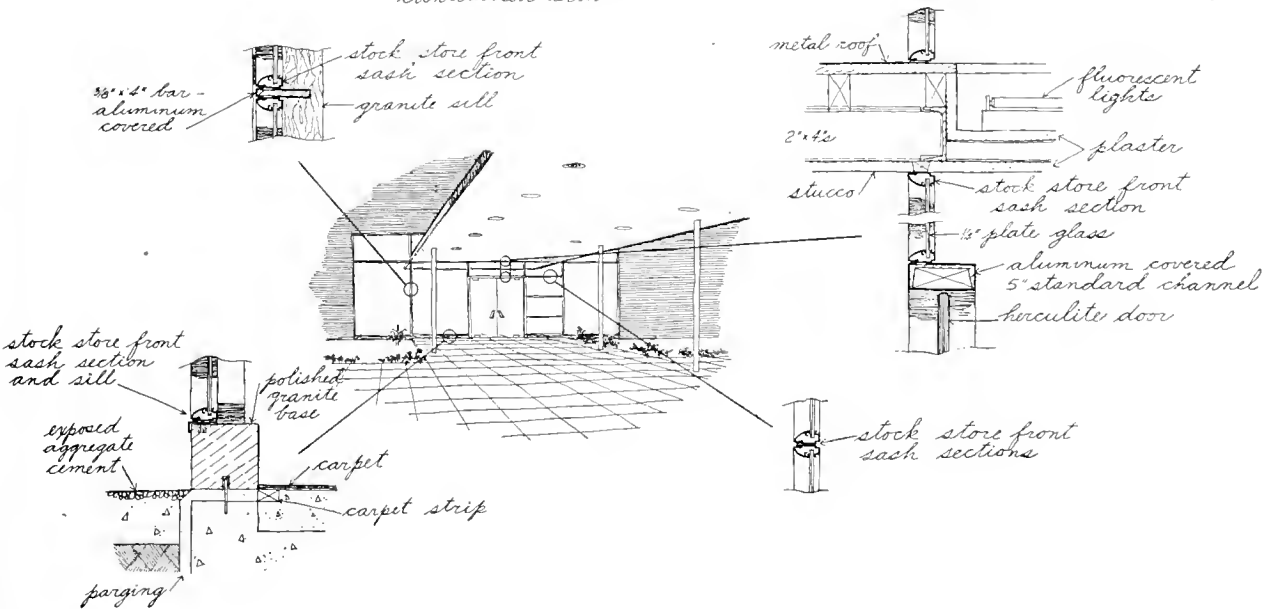 stock store front
sash section
3/8" x 4" bar -
aluminum
covered
granite sill
metal roof
fluorescent
lights
2" x 4's
plaster
stucco
stock store front
sash section
plate glass
aluminum covered
5" standard channel
herculite door
stock store front
sash section
and sill
polished
granite
base
exposed
aggregate
cement
carpet
carpet strip
parging
stock store front
sash sections